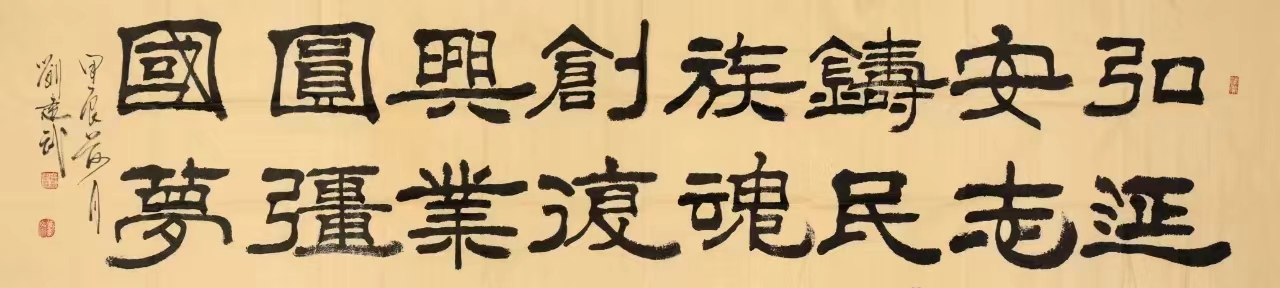 弘延
安志
鑄民
族魂
創復
興業
圓彊
國夢
甲辰月
劉武